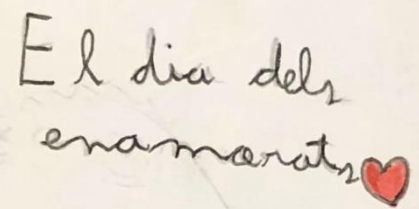 El dia dels
enamorats